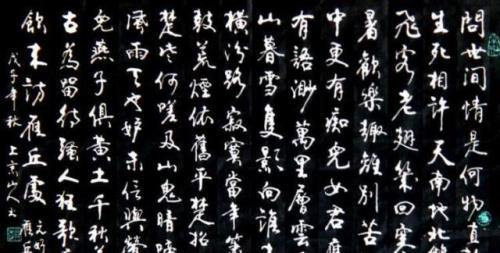 問世間情是何物直
生死相許天南地北
飛客老翅幾回寒
暑歡樂趣離別苦
中更有痴兒女君應
有語渺萬里層雲
山暮雪隻影向誰
橫汾路寂寞當年簫
鼓荒煙依舊平楚招
楚些何嗟及山鬼暗啼
風雨天也妒未信與鶯
兒燕子俱黃土千秋
古為留待騷人狂歌
飲來訪雁丘處
元好
戊子年秋上京山人